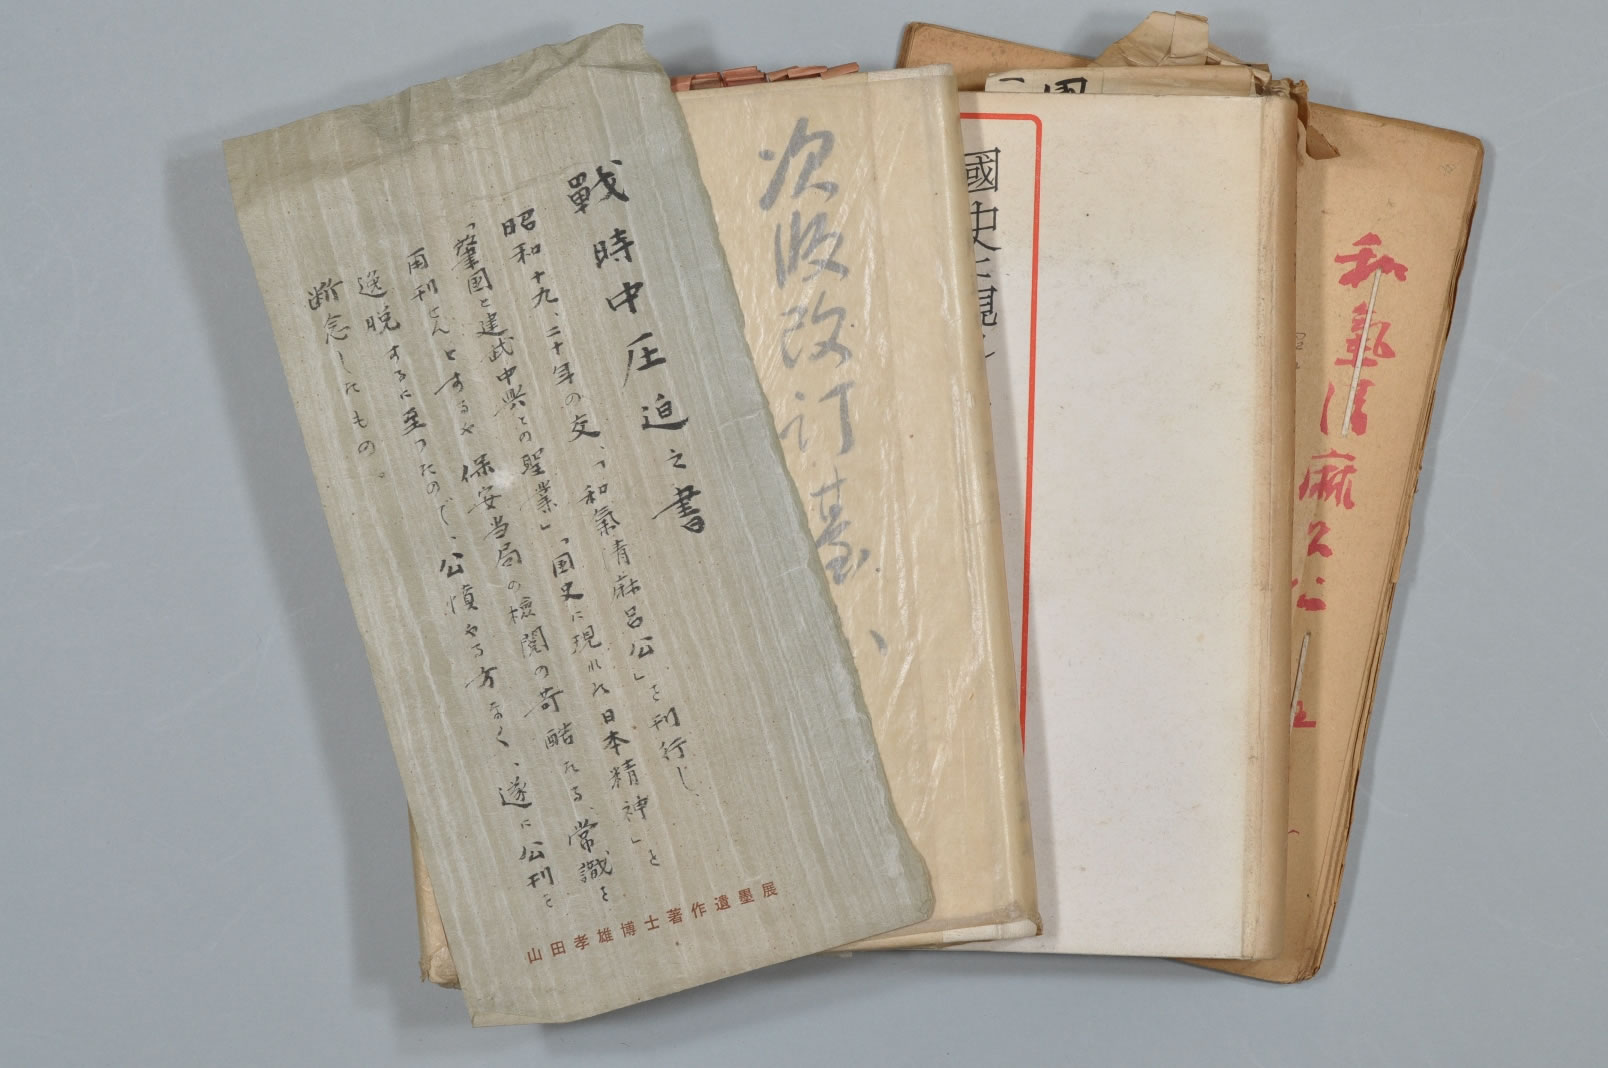 戰時中圧迫之書
昭和十九、二十年の交、「和氣清麻呂公」を刊行し、
「肇國と建武中興との聖業」「国史に現れた日本精神」を
再刊せんとするや保安当局の檢閲の苛酷なる、常識を
逸脱するに至つたので、公憤やる方なく、遂に公刊を
断念したもの。
山田孝雄博士著作遺墨展
次版改訂臺
國史に現
國
和氣清麻呂公